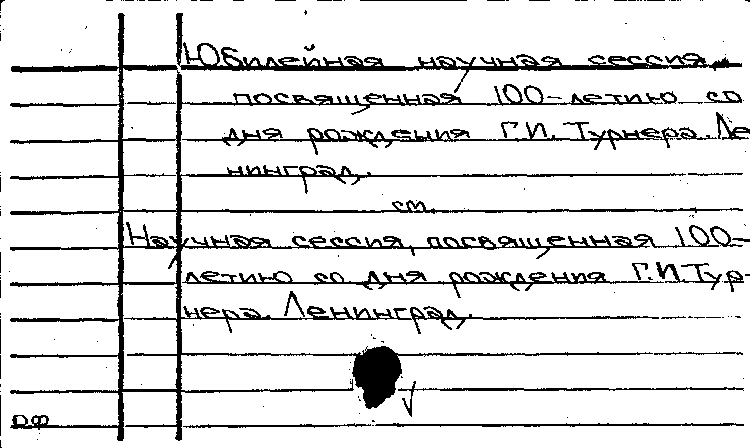 Юбилейная научная сессия,
посвященная 100-летию со
дня рождения Г.И. Турнера. Ле
нинград.
см.
Научная сессия, посвященная 100-
летию со дня рождения Г.И. Тур-
нера. Ленинград.
РФ